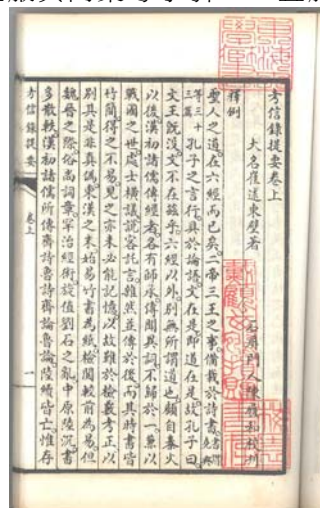 考信錄提要卷上
大名崔述東壁著
石屏門人陳履和校刊
釋例
聖人之道在六經而已矣二帝三王之事備載於詩書
孔子之言行具於論語文在是即道在是故孔子曰
文王既沒文不在茲乎六經以外別無所謂道也顧自秦火
以後漢初諸儒傳經者各有師承傳聞異詞不歸於一兼以
戰國之世處士橫議說客託言雜然並傳於後而其時書皆
竹簡得之不易見之亦未必能記憶以故難於檢覈考正以
別其是非真偽東漢之末始易竹書為紙檢閱較前為易但
魏晉之際俗尚詞章罕治經術旋值劉石之亂中原陸沉書
多散軼漢初諸儒所傳齊詩魯詩齊論魯論陸續皆亡惟存
考信錄提要 卷上 一